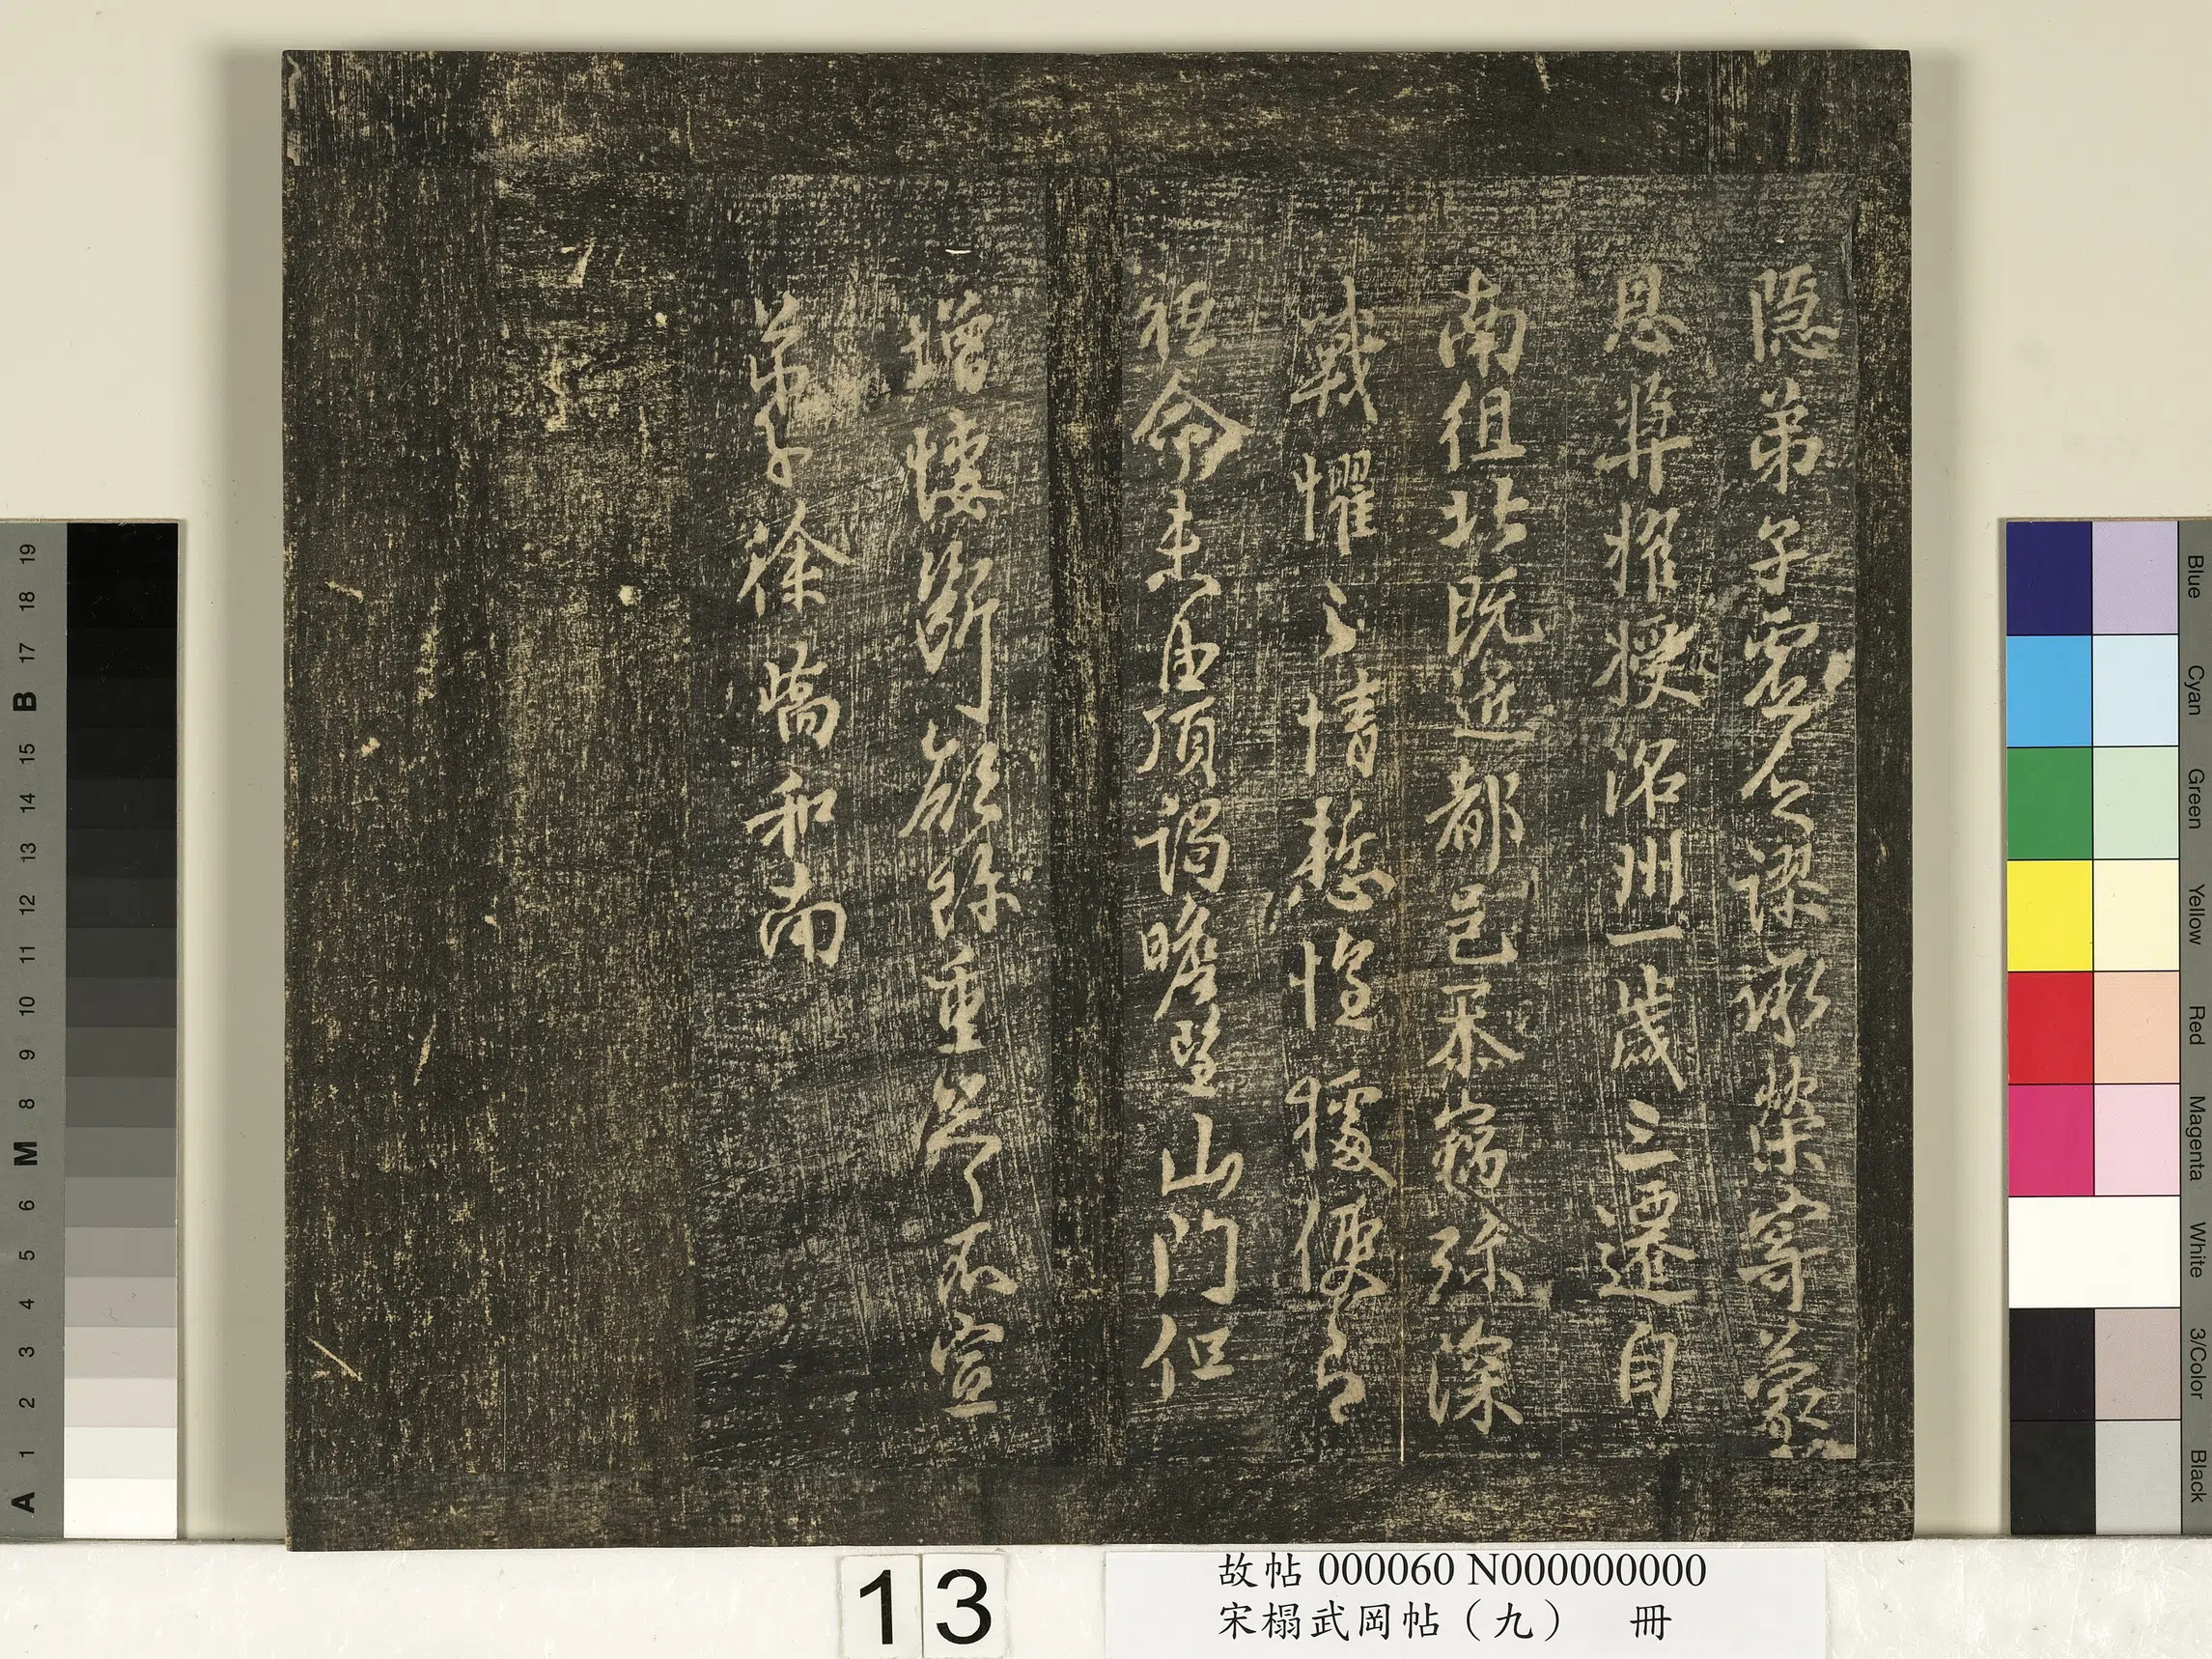 隱弟子虛乏謬承榮寄蒙
恩奬擢授洺州一歲三遷自
南徂北既近都邑忝竊彌深
戰懼之情慙惶便即
祗命未由頂謁瞻望山門但
增悽斷願珍重不宣
弟子徐嶠和南
19 18 17 B 15 14 13 12 11 10 9 8 M 6 5 4 3 2 1 A
Blue Cyan Green Yellow Red Magenta White 3/Color Black
13
故帖 000060 N000000000
宋榻武岡帖（九） 冊